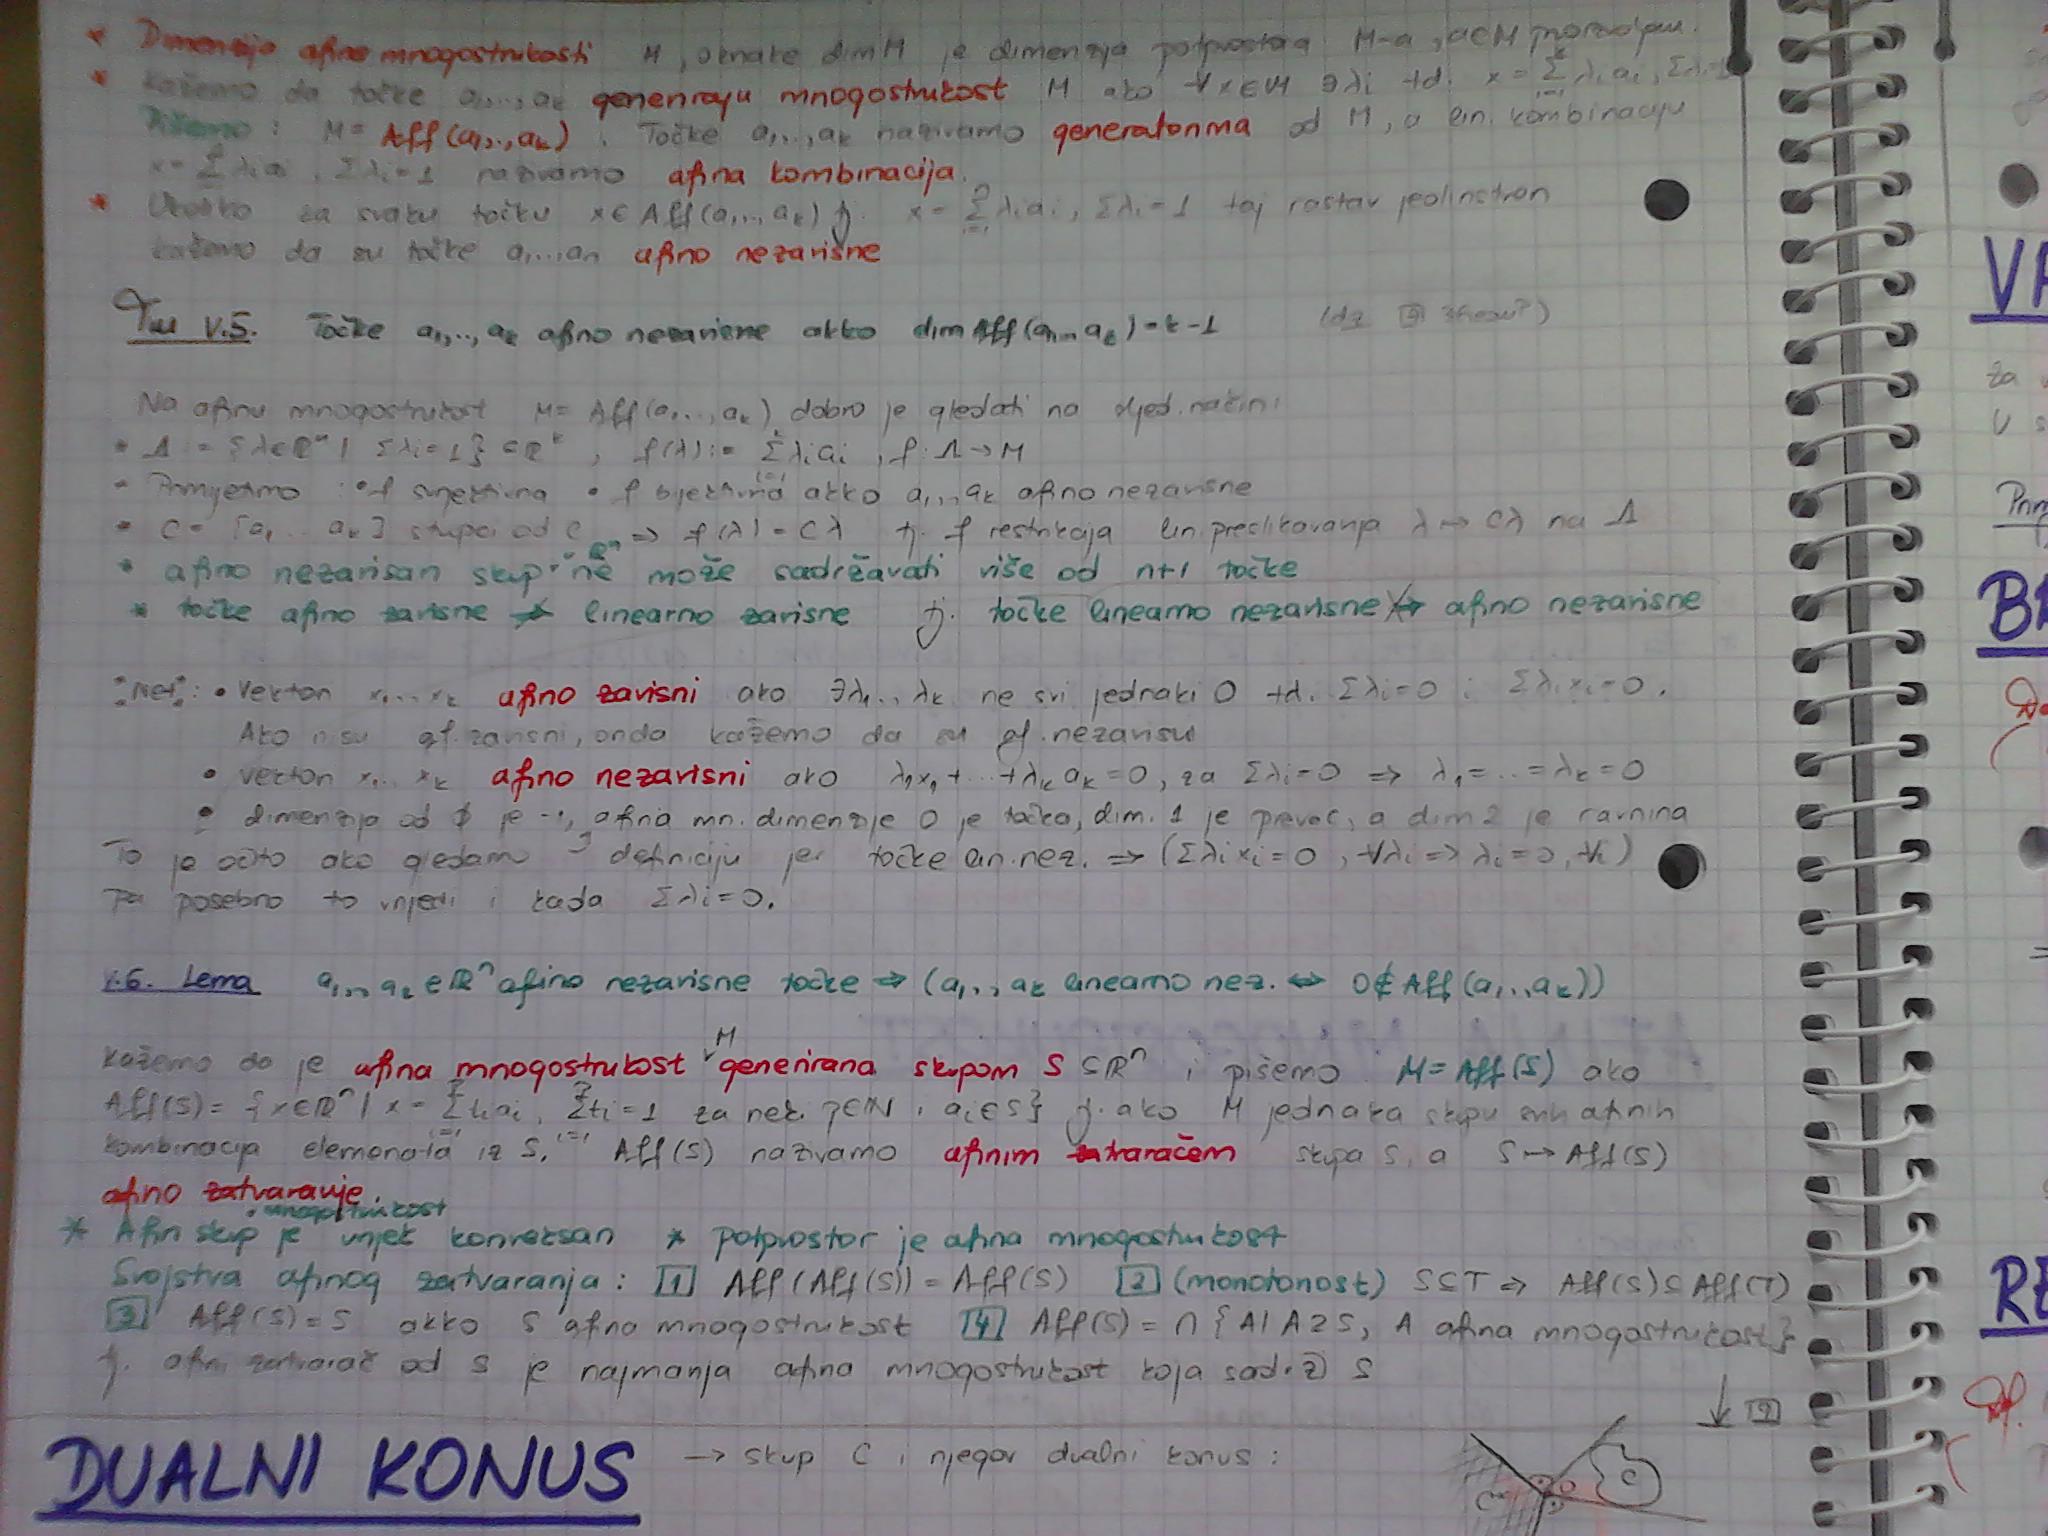 * Dimenzija afine mnogostrukosti M, oznake dim M je dimenzija potprostora M-a, a∈M proizvoljan.
* Kažemo da točke a₁,...,aₖ generiraju mnogostrukost M ako ∀x∈M ∃λi t.d. x = Σλiai, Σλi=1
Pišemo: M = Aff(a₁,..,aₖ). Točke a₁,..,aₖ nazivamo generatorima od M, a lin. kombinaciju
x = Σλiai, Σλi=1 nazivamo afina kombinacija.
* Ukoliko za svaku točku x∈Aff(a₁,..,aₖ) tj. x = Σλiai, Σλi=1 taj rastav jedinstven
kažemo da su točke a₁,...,an afino nezavisne
Tm V.5. Točke a₁,..,aₖ afino nezavisne akko dim Aff(a₁,..,aₖ)=k-1
Na afinu mnogostrukost M = Aff(a₁,...,aₖ) dobro je gledati na sljed. način:
* Λ := {λ∈ℝⁿ | Σλi=1} ⊂ ℝᵏ, f(λ) := Σλiai, f: Λ→M
- Primjetimo: • f surjektivna • f bijektivna akko a₁,..,aₖ afino nezavisne
* C = [a₁...aₖ] stupci od C ⇒ f(λ) = Cλ tj. f restrikcija lin. preslikavanja λ ↦ Cλ na Λ
* afino nezavisan skup u ℝⁿ ne može sadržavati više od n+1 točke
* točke afino zavisne ⇏ linearno zavisne tj. točke linearno nezavisne ⇏ afino nezavisne
"Net": • Vektori x₁...xₖ afino zavisni ako ∃λ₁..λₖ ne svi jednaki 0 t.d. Σλi=0 i Σλixi=0.
Ako nisu af. zavisni, onda kažemo da su af. nezavisni
• vektori x₁...xₖ afino nezavisni ako λ₁x₁+...+λₖaₖ=0, za Σλi=0 ⇒ λ₁=...=λₖ=0
• dimenzija od ∅ je -1, afina mn. dimenzije 0 je točka, dim. 1 je pravac, a dim 2 je ravnina
To je očito ako gledamo definiciju jer točke lin. nez. ⇒ (Σλixi=0, ∀λi ⇒ λi=0, ∀i)
pa posebno to vrijedi i kada Σλi=0.
V.6. Lema a₁,..,aₖ∈ℝⁿ afino nezavisne točke ⇒ (a₁,..,aₖ linearno nez. ⇔ 0∉Aff(a₁,..,aₖ))
Kažemo da je afina mnogostrukost M generirana skupom S⊆ℝⁿ i pišemo M = Aff(S) ako
Aff(S) = {x∈ℝⁿ | x = Σtiai, Σti=1 za nek. p∈ℕ i ai∈S} tj. ako M jednaka skupu svih afinih
kombinacija elemenata iz S. Aff(S) nazivamo afinim zatvaračem skupa S, a S ↦ Aff(S)
afino zatvaranje.
mnogostrukost
* Afin skup je uvijek konveksan * potprostor je afina mnogostrukost
Svojstva afinog zatvaranja: [1] Aff(Aff(S)) = Aff(S) [2] (monotonost) S⊆T ⇒ Aff(S)⊆Aff(T)
[3] Aff(S)=S akko S afina mnogostrukost [4] Aff(S) = ∩{A | A⊇S, A afina mnogostrukost}
tj. afini zatvarač od S je najmanja afina mnogostrukost koja sadrži S
DUALNI KONUS → skup C i njegov dualni konus:
C
VA
za
U
BA
RE
Df.